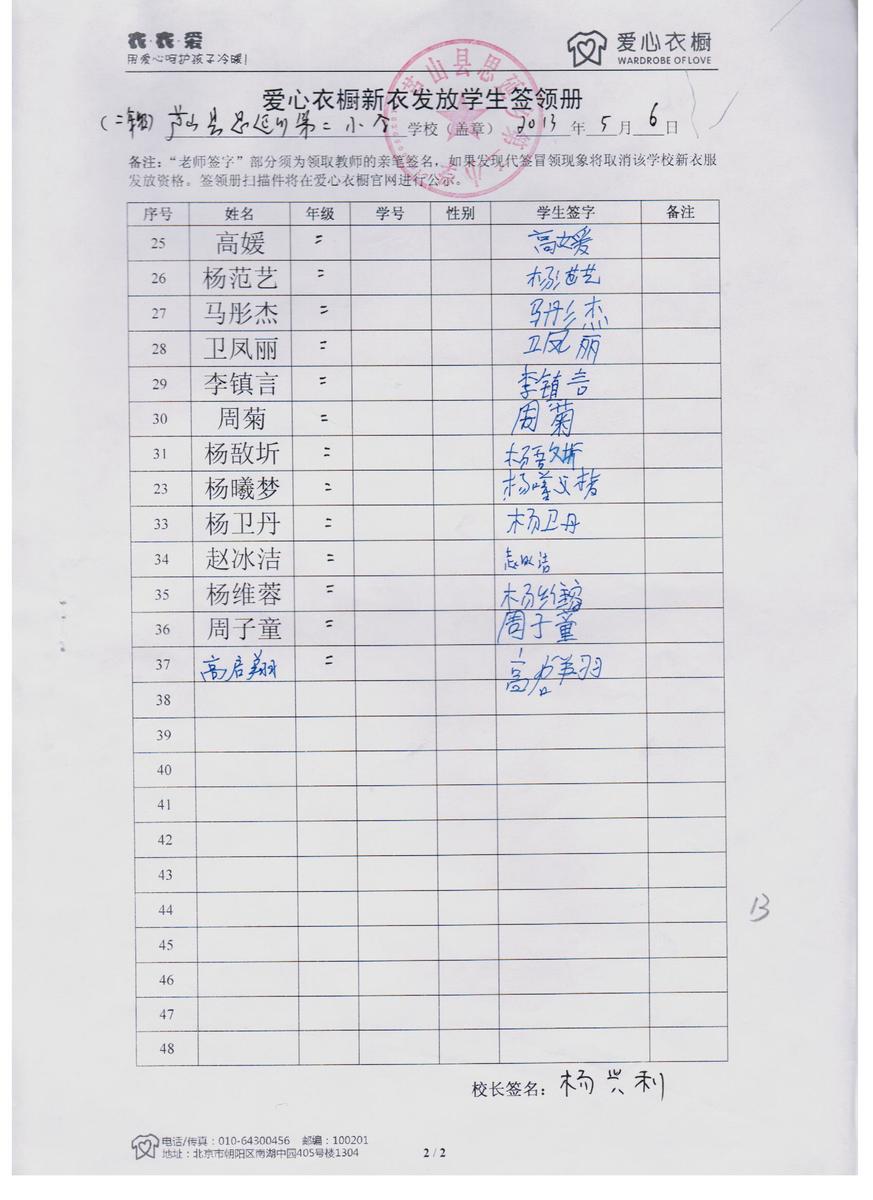 衣·衣·爱
用爱心呵护孩子冷暖!
爱心衣橱
WARDROBE OF LOVE
爱心衣橱新衣发放学生签领册
芦山县思延乡第二小学 学校（盖章） 2013 年 5 月 6 日
备注：“老师签字”部分须为领取教师的亲笔签名，如果发现代签冒领现象将取消该学校新衣服
发放资格。签领册扫描件将在爱心衣橱官网进行公示。
序号 姓名 年级 学号 性别 学生签字 备注
25 高媛 二 高媛
26 杨范艺 二 杨范艺
27 马彤杰 二 马彤杰
28 卫凤丽 二 卫凤丽
29 李镇言 二 李镇言
30 周菊 二 周菊
31 杨敔圻 二 杨敔圻
23 杨曦梦 二
33 杨卫丹 二 杨卫丹
34 赵冰洁 二
35 杨维蓉 二
36 周子童 二 周子童
37 高启翔 二 高启翔
38
39
40
41
42
43
44
45
46
47
48
13
校长签名：杨兴利
电话/传真：010-64300456 邮编：100201
地址：北京市朝阳区南湖中园405号楼1304
2 / 2